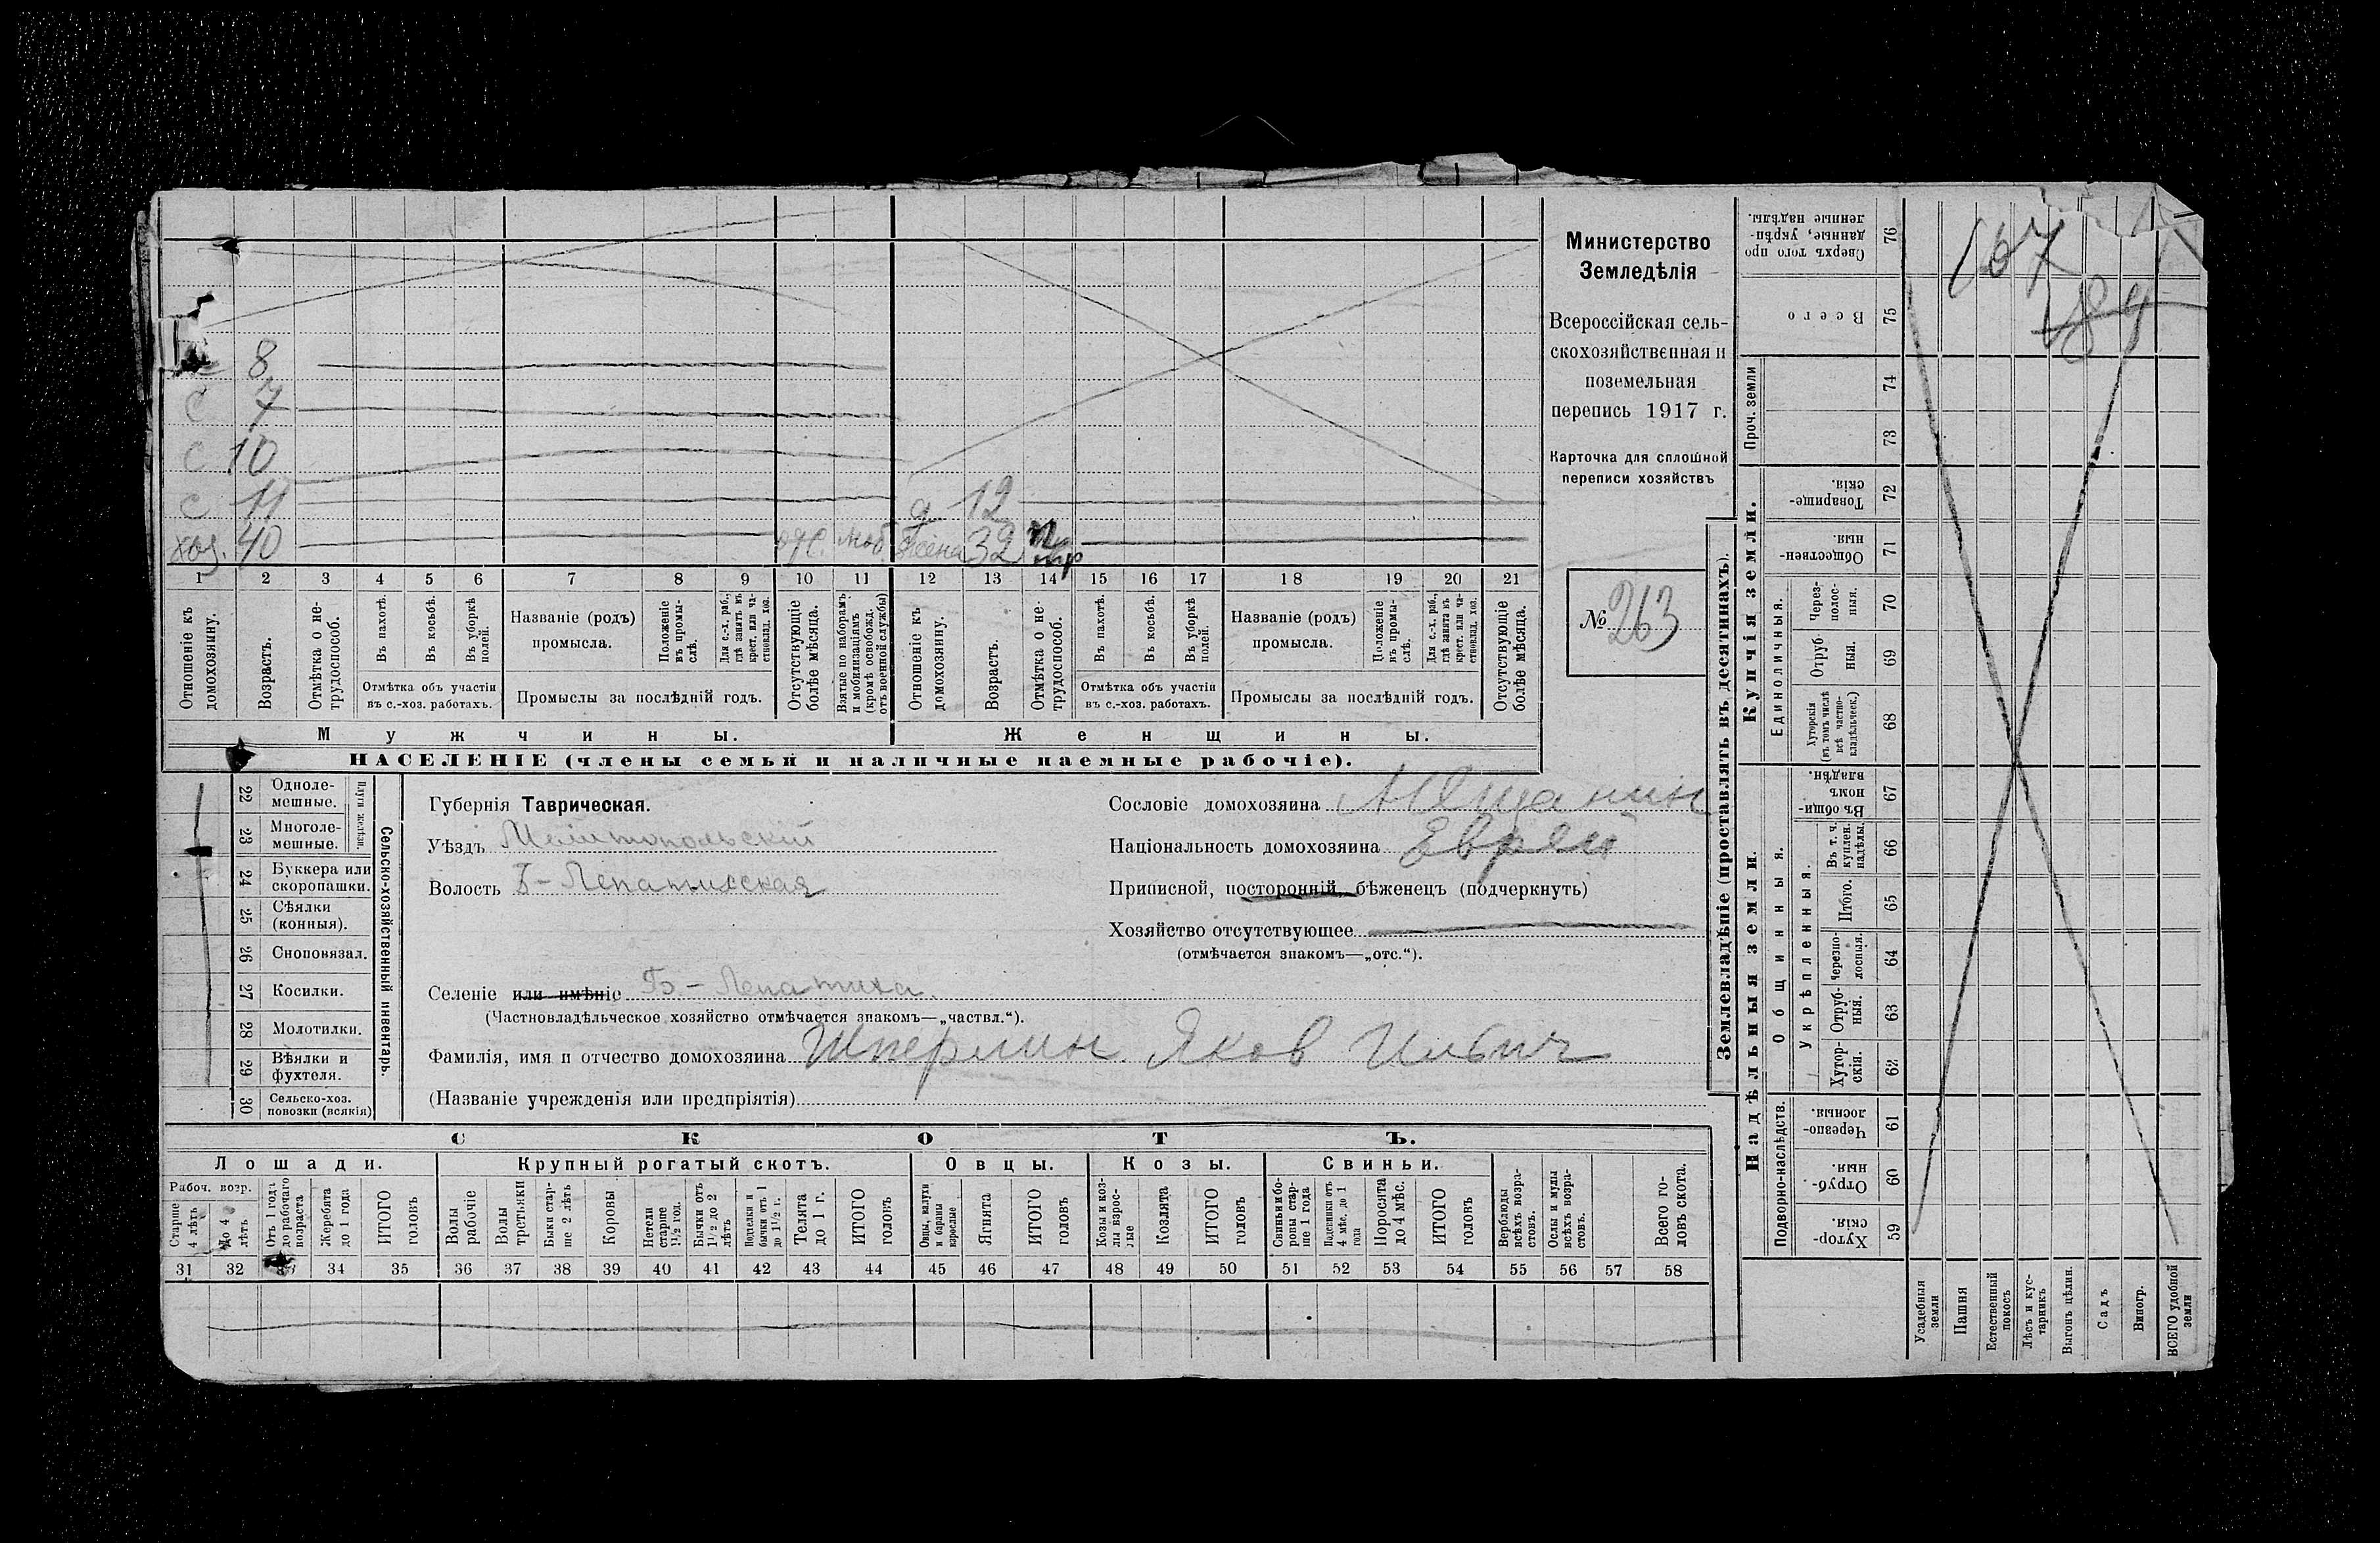 8
с 7
с 10
с 11 д 12
хоз. 40 отс. моб. жена 32
1 2 3 4 5 6 7 8 9 10 11 12 13 14 15 16 17 18 19 20 21
Отношеніе къ домохозяину.
Возрастъ.
Отмѣтка о нетрудоспособ.
Въ пахотѣ.
Въ косьбѣ.
Въ уборкѣ полей.
Отмѣтка объ участіи въ с.-хоз. работахъ.
Названіе (родъ) промысла.
Положеніе въ промыслѣ.
Для с.-х. раб., гдѣ занятъ въ крест. или частновлад. хоз.
Промыслы за послѣдній годъ.
Отсутствующіе болѣе мѣсяца.
Взятые по наборамъ и мобилизаціямъ (кромѣ освобожд. отъ военной службы)
Отношеніе къ домохозяину.
Возрастъ.
Отмѣтка о нетрудоспособ.
Въ пахотѣ.
Въ косьбѣ.
Въ уборкѣ полей.
Отмѣтка объ участіи въ с.-хоз. работахъ.
Названіе (родъ) промысла.
Положеніе въ промыслѣ.
Для с.-х. раб., гдѣ занятъ въ крест. или частновлад. хоз.
Промыслы за послѣдній годъ.
Отсутствующіе болѣе мѣсяца.
Мужчины.
Женщины.
НАСЕЛЕНІЕ (члены семьи и наличные наемные рабочіе).
Министерство
Земледѣлія
Всероссійская сель-
скохозяйственная и
поземельная
перепись 1917 г.
Карточка для сплошной
переписи хозяйствъ
№ 263
22 Однолемешные.
23 Многолемешные.
Плуги желѣзн.
24 Буккера или скоропашки.
25 Сѣялки (конныя).
26 Сноповязал.
27 Косилки.
28 Молотилки.
29 Вѣялки и фухтеля.
30 Сельско-хоз. повозки (всякія)
Сельско-хозяйственный инвентарь.
Губернія Таврическая.
Уѣздъ Мелитопольский
Волость Б-Лепатихская
Сословіе домохозяина Мещанин
Національность домохозяина Еврей
Приписной, посторонній, бѣженецъ (подчеркнуть)
Хозяйство отсутствующее
(отмѣчается знакомъ—„отс.“).
Селеніе или имѣніе Б-Лепатиха.
(Частновладѣльческое хозяйство отмѣчается знакомъ—„частвл.“).
Фамилія, имя и отчество домохозяина Шперлин Яков
(Названіе учрежденія или предпріятія)
СКОТЪ.
Лошади.
Крупный рогатый скотъ.
Овцы.
Козы.
Свиньи.
Рабоч. возр.
Старше 4 лѣтъ
До 4 лѣтъ
Отъ 1 года до рабочаго возраста
Жеребята до 1 года
ИТОГО головъ
Волы рабочіе
Волы третьяки
Быки старше 2 лѣтъ
Коровы
Нетели старше 1½ год.
Бычки отъ 1½ до 2 лѣтъ
Подтелки и бычки отъ 1 до 1½ г.
Телята до 1 г.
ИТОГО головъ
Овцы, валухи и бараны взрослые
Ягнята
ИТОГО головъ
Козы и козлы взрослые
Козлята
ИТОГО головъ
Свиньи и боровы старше 1 года
Подсвинки отъ 4 мѣс. до 1 года
Поросята до 4 мѣс.
ИТОГО головъ
Верблюды всѣхъ возрастовъ.
Ослы и мулы всѣхъ возрастовъ.
Всего головъ скота.
31 32 33 34 35 36 37 38 39 40 41 42 43 44 45 46 47 48 49 50 51 52 53 54 55 56 57 58
Землевладѣніе (проставлять въ десятинахъ).
Надѣльныя земли.
Купчія земли.
Подворно-наслѣдств.
Общинныя.
Укрѣпленныя.
Единоличныя.
Проч. земли
Сверхъ того проданные, укрѣпленные надѣлы. 76
Всего 75
74
73
Товарищескія. 72
Общественныя. 71
Черезполосныя. 70
Отрубныя. 69
Хуторскія (въ томъ числѣ всѣ частновладѣльческ.) 68
Въ общинномъ владѣн. 67
Въ т. ч. куплен. надѣлы. 66
Итого. 65
Черезполосныя. 64
Отрубныя. 63
Хуторскія. 62
Черезполосныя. 61
Отрубныя. 60
Хуторскія. 59
167
189
Усадебныя земли
Пашня
Естественный покосъ
Лѣсъ и кустарникъ
Выгонъ цѣлин.
Садъ
Виногр.
ВСЕГО удобной земли